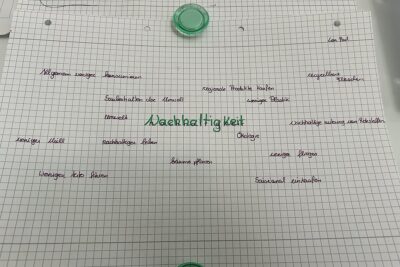 Allgemein weniger konsumieren
regionale Produkte kaufen
Sauberhalten der Umwelt
weniger Plastik
Umwelt
Nachhaltigkeit
nachhaltige nutzung von
weniger Müll
nachhaltiger leben
Ökologie
bäume pflanzen
weniger fliegen
Weniger Auto fahren
Saisonal einkaufen